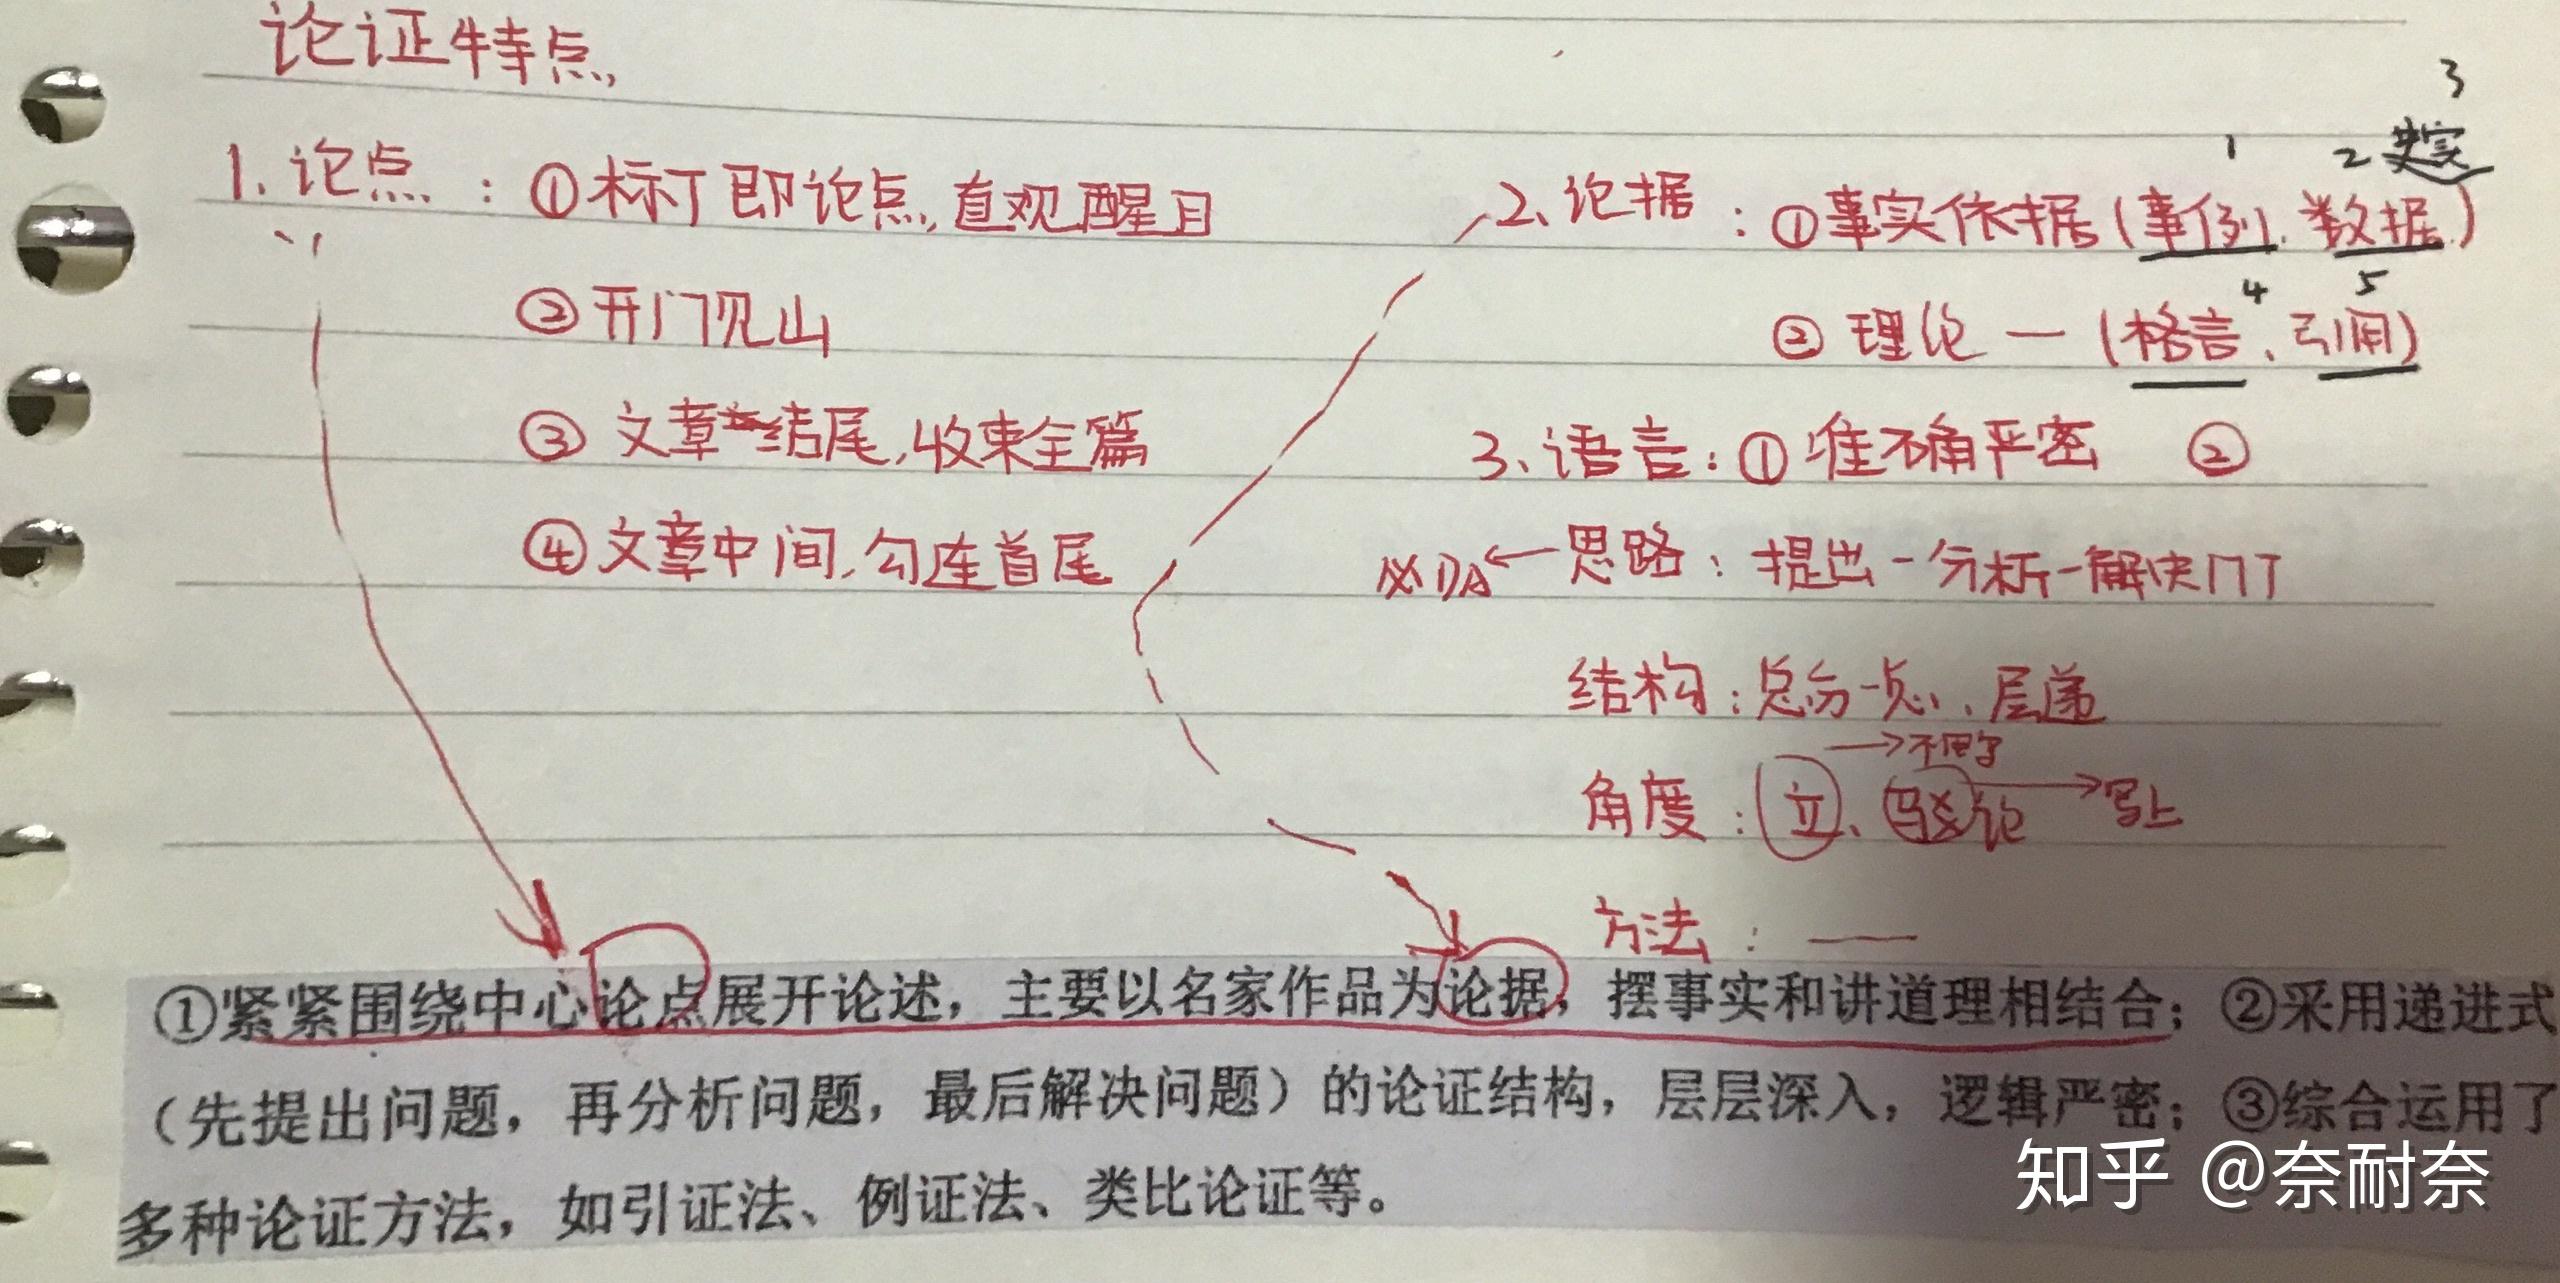 论证特点
1. 论点：①标丁即论点,直观醒目
②开门见山
③文章结尾,收束全篇
④文章中间,勾连首尾
3
1 2 史实
2、论据：①事实依据(事例、数据)
4 5
②理论—(格言、引用)
3、语言：①准确严密 ②
←思路：提出-分析-解决门丁
结构：总分-总、层递
→不用写
角度：立、驳论→写上
方法：——
①紧紧围绕中心论点展开论述，主要以名家作品为论据，摆事实和讲道理相结合；②采用递进式
（先提出问题，再分析问题，最后解决问题）的论证结构，层层深入，逻辑严密；③综合运用了
多种论证方法，如引证法、例证法、类比论证等。
知乎 @奈耐奈